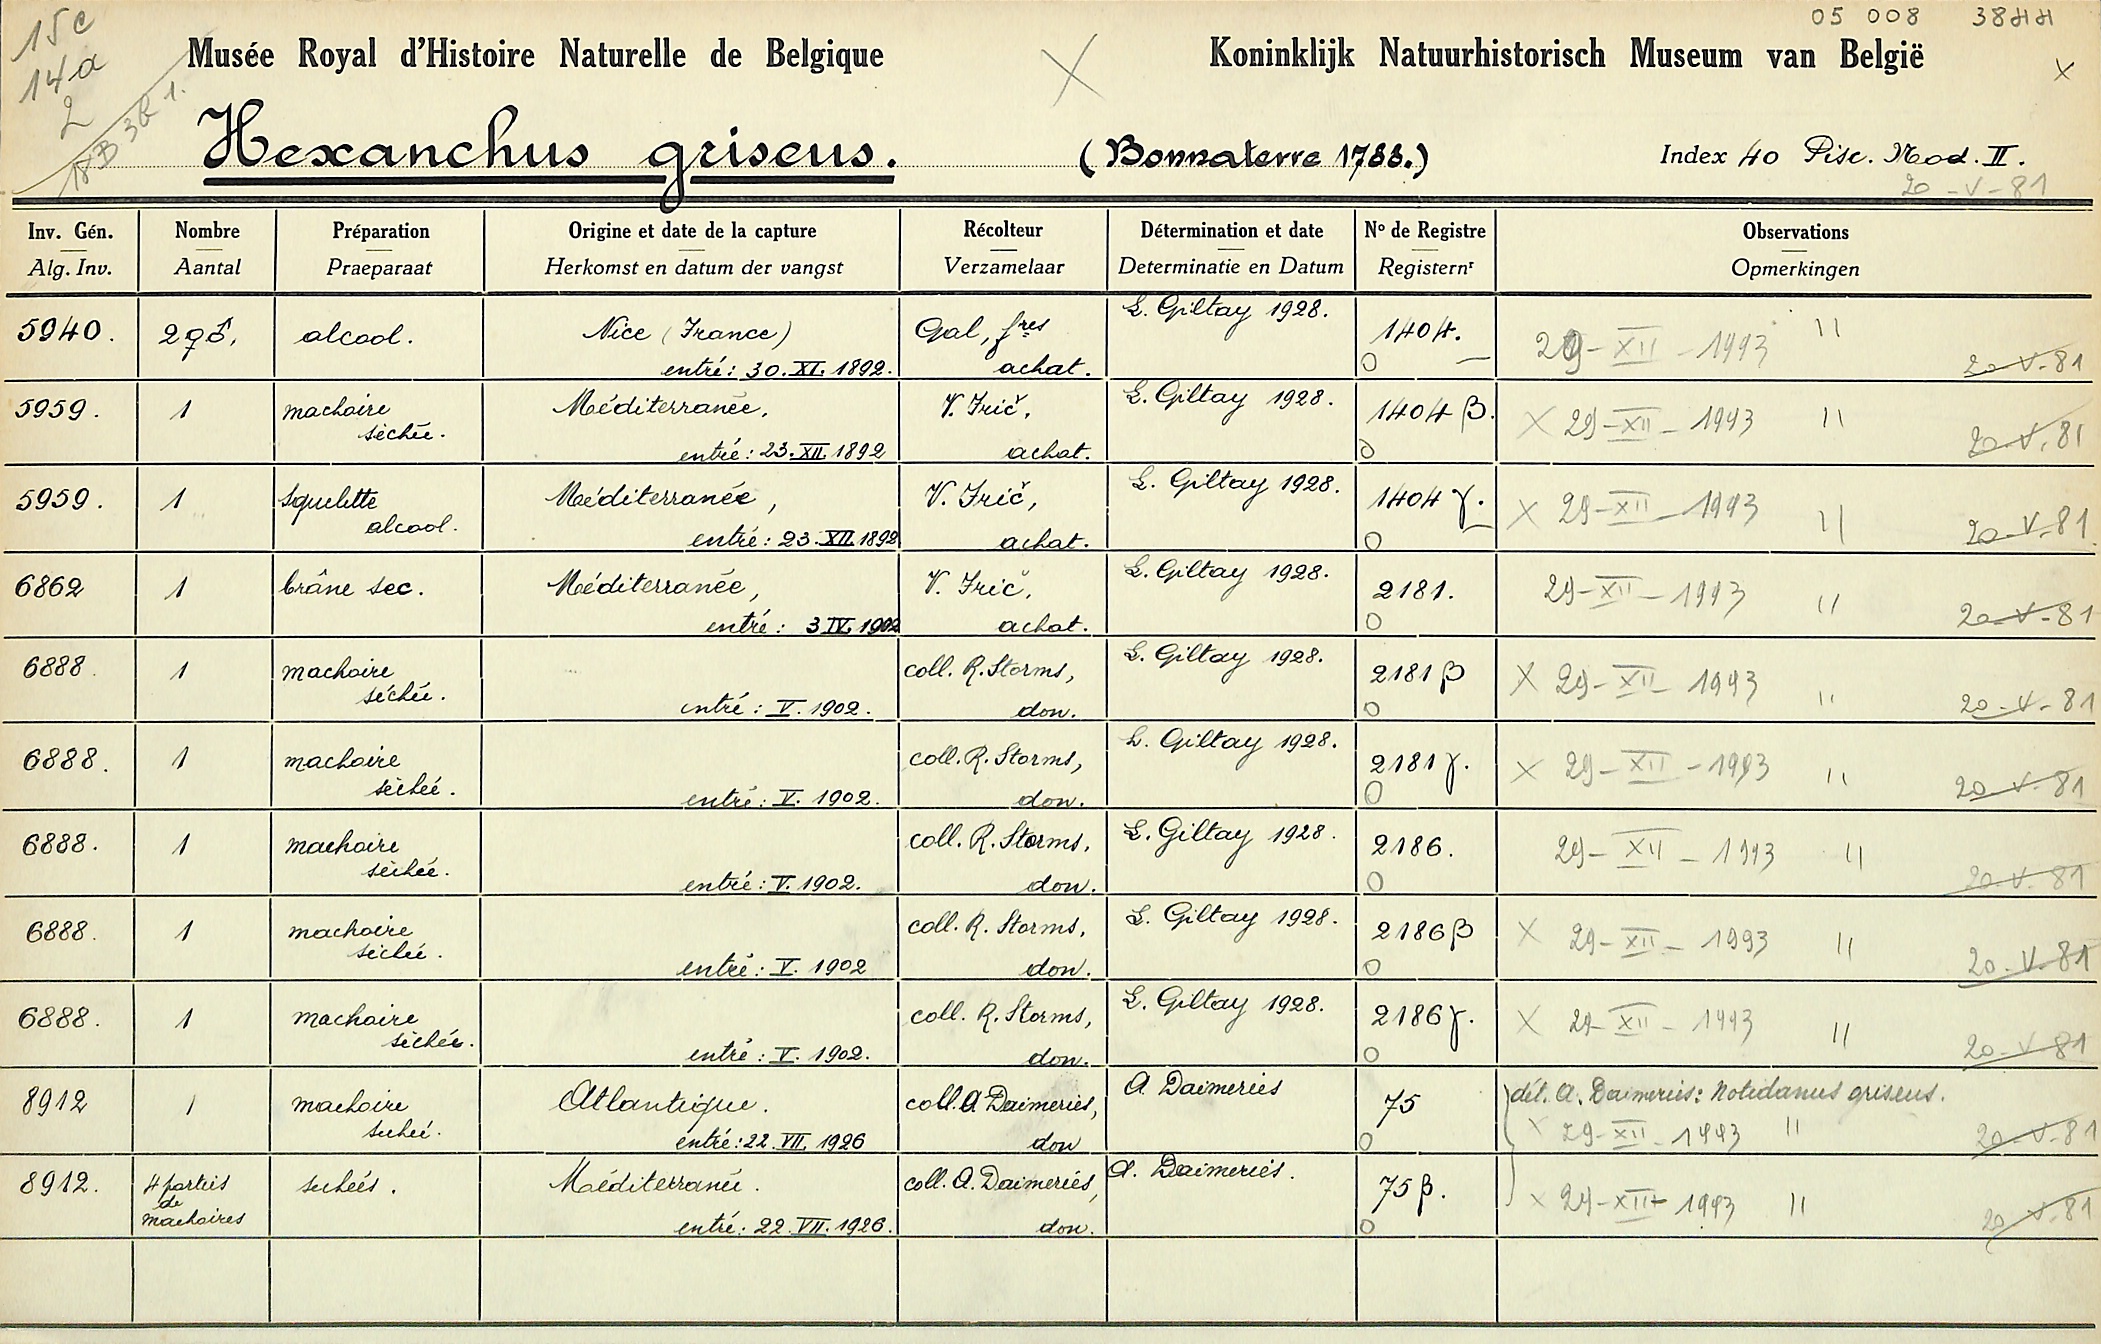 15c
14a
2
18B 3b 1.
05 008 3844
Musée Royal d'Histoire Naturelle de Belgique
Koninklijk Natuurhistorisch Museum van België
Hexanchus griseus. (Bonnaterre 1788.) Index 40 Pisc. Mod. II.
20-V-81
Inv. Gén. Nombre Préparation Origine et date de la capture Récolteur Détermination et date N° de Registre Observations
Alg. Inv. Aantal Praeparaat Herkomst en datum der vangst Verzamelaar Determinatie en Datum Registernr Opmerkingen
5940. 2 alcool. Nice (France) Gal, fres L. Giltay 1928. 1404. 29-XII-1993 "
entré: 30.XI.1892. achat. 0 20-V-81
5959. 1 machoire Méditerranée, V. Frič, L. Giltay 1928. 1404 β. X 29-XII-1993 "
séchée. entré: 23.XII.1892 achat. 0 20-V-81
5959. 1 squelette Méditerranée, V. Frič, L. Giltay 1928. 1404 γ. X 29-XII-1993 "
alcool. entré: 23.XII.1892 achat. 0 20-V-81
6862 1 Crâne sec. Méditerranée, V. Frič, L. Giltay 1928. 2181. 29-XII-1993 "
entré: 3 IV.1902 achat. 0 20-V-81
6888. 1 machoire coll. R. Storms, L. Giltay 1928. 2181 β X 29-XII-1993 "
séchée. entré: V.1902. don. 0 20-V-81
6888. 1 machoire coll. R. Storms, L. Giltay 1928. 2181 γ. X 29-XII-1993 "
séchée. entré: V.1902. don. 0 20-V-81
6888. 1 machoire coll. R. Storms, L. Giltay 1928. 2186. 29-XII-1993 "
séchée. entré: V.1902. don. 0 20-V-81
6888. 1 machoire coll. R. Storms, L. Giltay 1928. 2186 β X 29-XII-1993 "
séchée. entré: V.1902 don. 0 20-V-81
6888. 1 machoire coll. R. Storms, L. Giltay 1928. 2186 γ. X 29-XII-1993 "
séchée. entré: V.1902. don. 0 20-V-81
8912 1 machoire Atlantique. coll. A Daimeries, A Daimeries 75 dét. A. Daimeries: Notidanus griseus.
séchée. entré: 22.VII.1926 don 0 X 29-XII-1993 " 20-V-81
8912. 4 parties séchées. Méditerranée. coll. A. Daimeries, A. Daimeries. 75 β. X 29-XII-1993 "
de
machoires entré: 22.VII.1926. don. 0 20-V-81